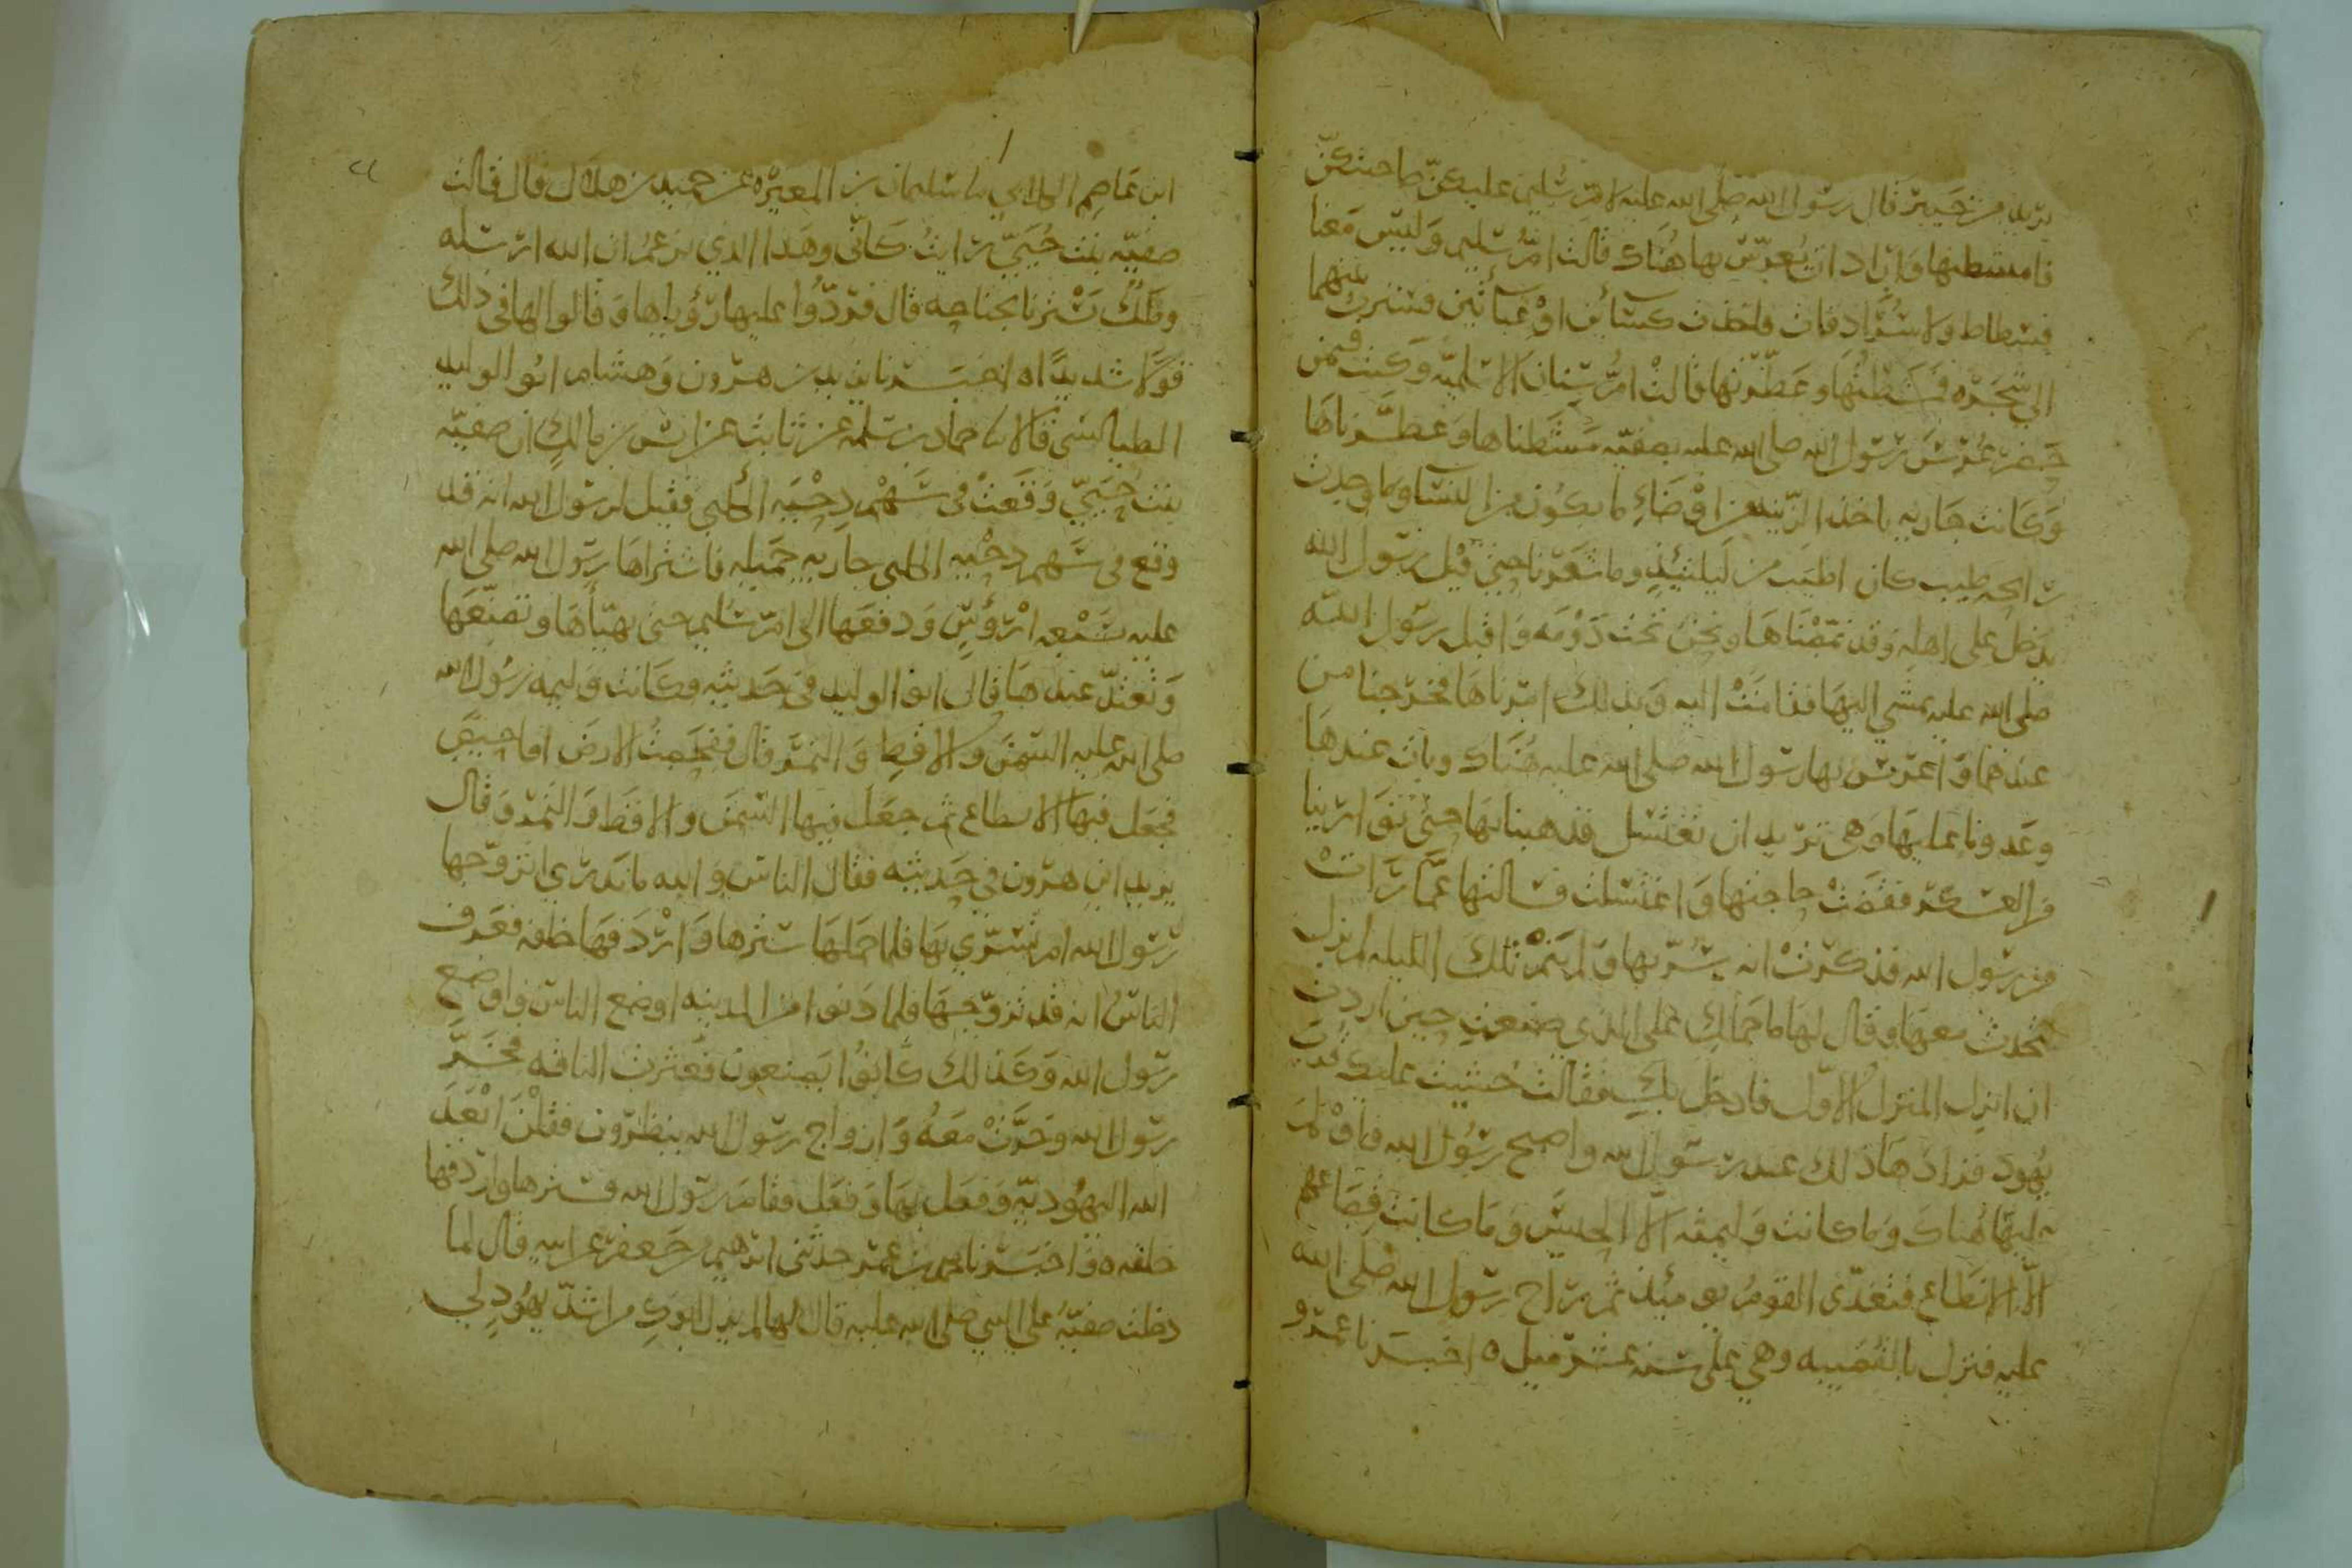 بريد من خيبر قال رسول الله صلى الله عليه لام سليم عليكن صاحبتكن
فامشطنها واراد ان يعرس بها هناك قالت ام سليم وليس معنا
فسطاط ولا سرادقات فاخذت كسائين او عبائين فسترت بينهما
الى شجره فمشطتها وعطرتها قالت ام سنان الاسلميه وكنت فيمن
حضر عرس رسول الله صلى الله عليه بصفيه مشطناها وعطرناها
وكانت جاريه ياخذ الزينه من اوضاء ما يكون من النسا وما وجدت
رائحه طيب كان اطيب من ليلتئذ وما شعرنا حتى قيل رسول الله
يدخل على اهله وقد نمصناها ونحن تحت دومه واقبل رسول الله
صلى الله عليه يمشي اليها فقامت اليه وبذلك امرناها فخرجنا من
عندهما واعرس بها رسول الله صلى الله عليه هناك وبات عندها
وغدونا عليها وهي تريد ان تغتسل فذهبنا بها حتى توارينا
من العسكر فقضت حاجتها واغتسلت فسالتها عما رات
من رسول الله فذكرت انه سر بها ولم ينم تلك الليله لم يزل
يتحدث معها وقال لها ما حملك على الذي صنعت حين اردت
ان انزل المنزل الاول فادخل بك فقالت خشيت عليك قرب
يهود فزادها ذلك عند رسول الله واصبح رسول الله فاولم
عليها هناك وما كانت وليمته الا الحيس وما كانت قصاعهم
الا الانطاع فتغدى القوم يومئذ ثم راح رسول الله صلى الله
عليه فنزل بالقصيبه وهي على سته عشر ميلا ه اخبرنا عمرو
ابن عاصم الكلابي نا سليمان بن المغيره عن حميد بن هلال قال قالت
صفيه بنت حيي رايت كاني وهذا الذي يزعم ان الله ارسله
وملك يسترنا بجناحه قال فردوا عليها رؤياها وقالوا لها في ذلك
قولا شديدا ه اخبرنا يزيد بن هرون وهشام ابو الوليد
الطيالسي قالا نا حماد بن سلمه عن ثابت عن انس بن مالك ان صفيه
بنت حيي وقعت في سهم دحيه الكلبي فقيل لرسول الله انه قد
وقع في سهم دحيه الكلبي جاريه جميله فاشتراها رسول الله صلى الله
عليه بسبعه ارؤس ودفعها الى ام سليم حتى تهيأها وتصنعها
وتعتد عندها قال ابو الوليد في حديثه وكانت وليمه رسول الله
صلى الله عليه السمن والاقط والتمر قال ففحصت الارض افاحيص
فجعل فيها الانطاع ثم جعل فيها السمن والاقط والتمر وقال
يزيد ابن هرون في حديثه فقال الناس والله ما ندري اتزوجها
رسول الله ام تسرى بها فلما حملها سترها واردفها خلفه فعرف
الناس انه قد تزوجها فلما دنوا من المدينه اوضع الناس واوضع
رسول الله وكذلك كانوا يصنعون فعثرت الناقه فخر
رسول الله وخرت معه وازواج رسول الله ينظرون فقلن ابعد
الله اليهوديه وفعل بها وفعل فقام رسول الله فسترها واردفها
خلفه ه واخبرنا محمد بن عمر حدثني ابرهيم بن جعفر عن ابيه قال لما
دخلت صفيه على النبي صلى الله عليه قال لها لم يزل ابوك من اشد يهود لي